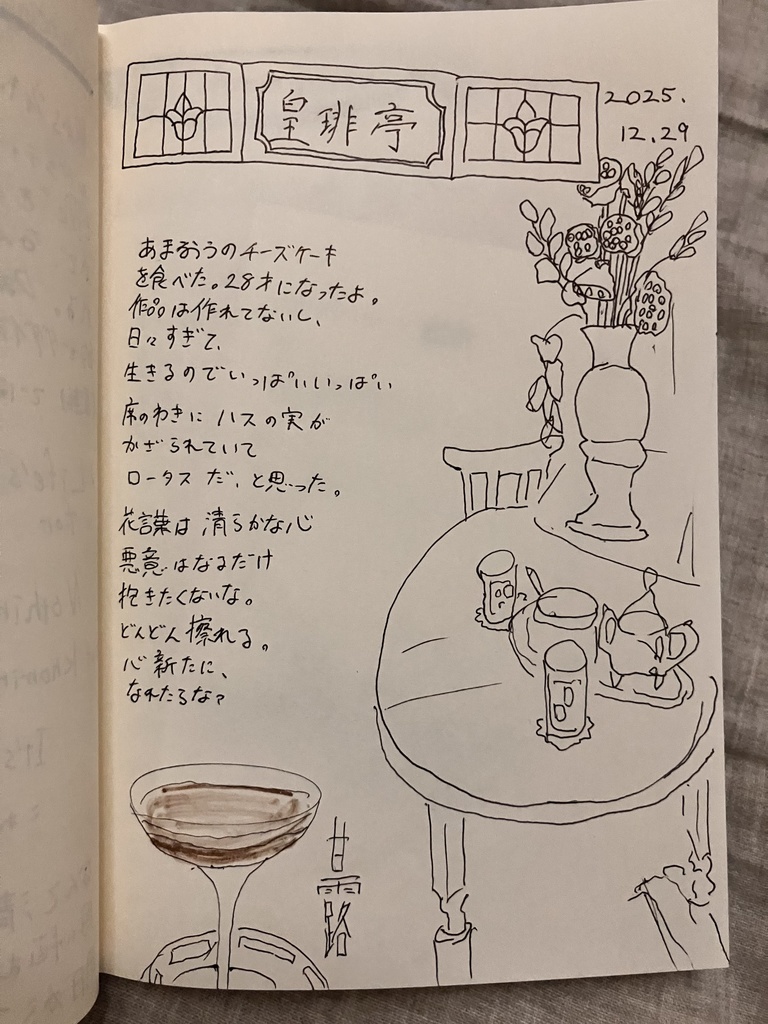 皇琲亭
2025.
12.29
あまおうのチーズケーキ
を食べた。28才になったよ。
作品は作れてないし、
日々すぎて、
生きるのでいっぱいいっぱい
席のわきに ハスの実が
かざられていて
ロータス だ、と思った。
花言葉は 清らかな心
悪意はなるだけ
抱きたくないな。
どんどん擦れる。
心新たに、
なれたらな?
甘露